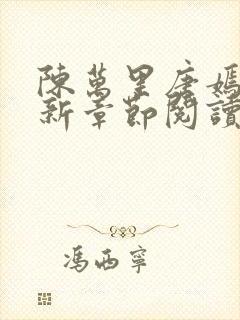 陳萬里唐嫣
新章節閱讀
馮西寧